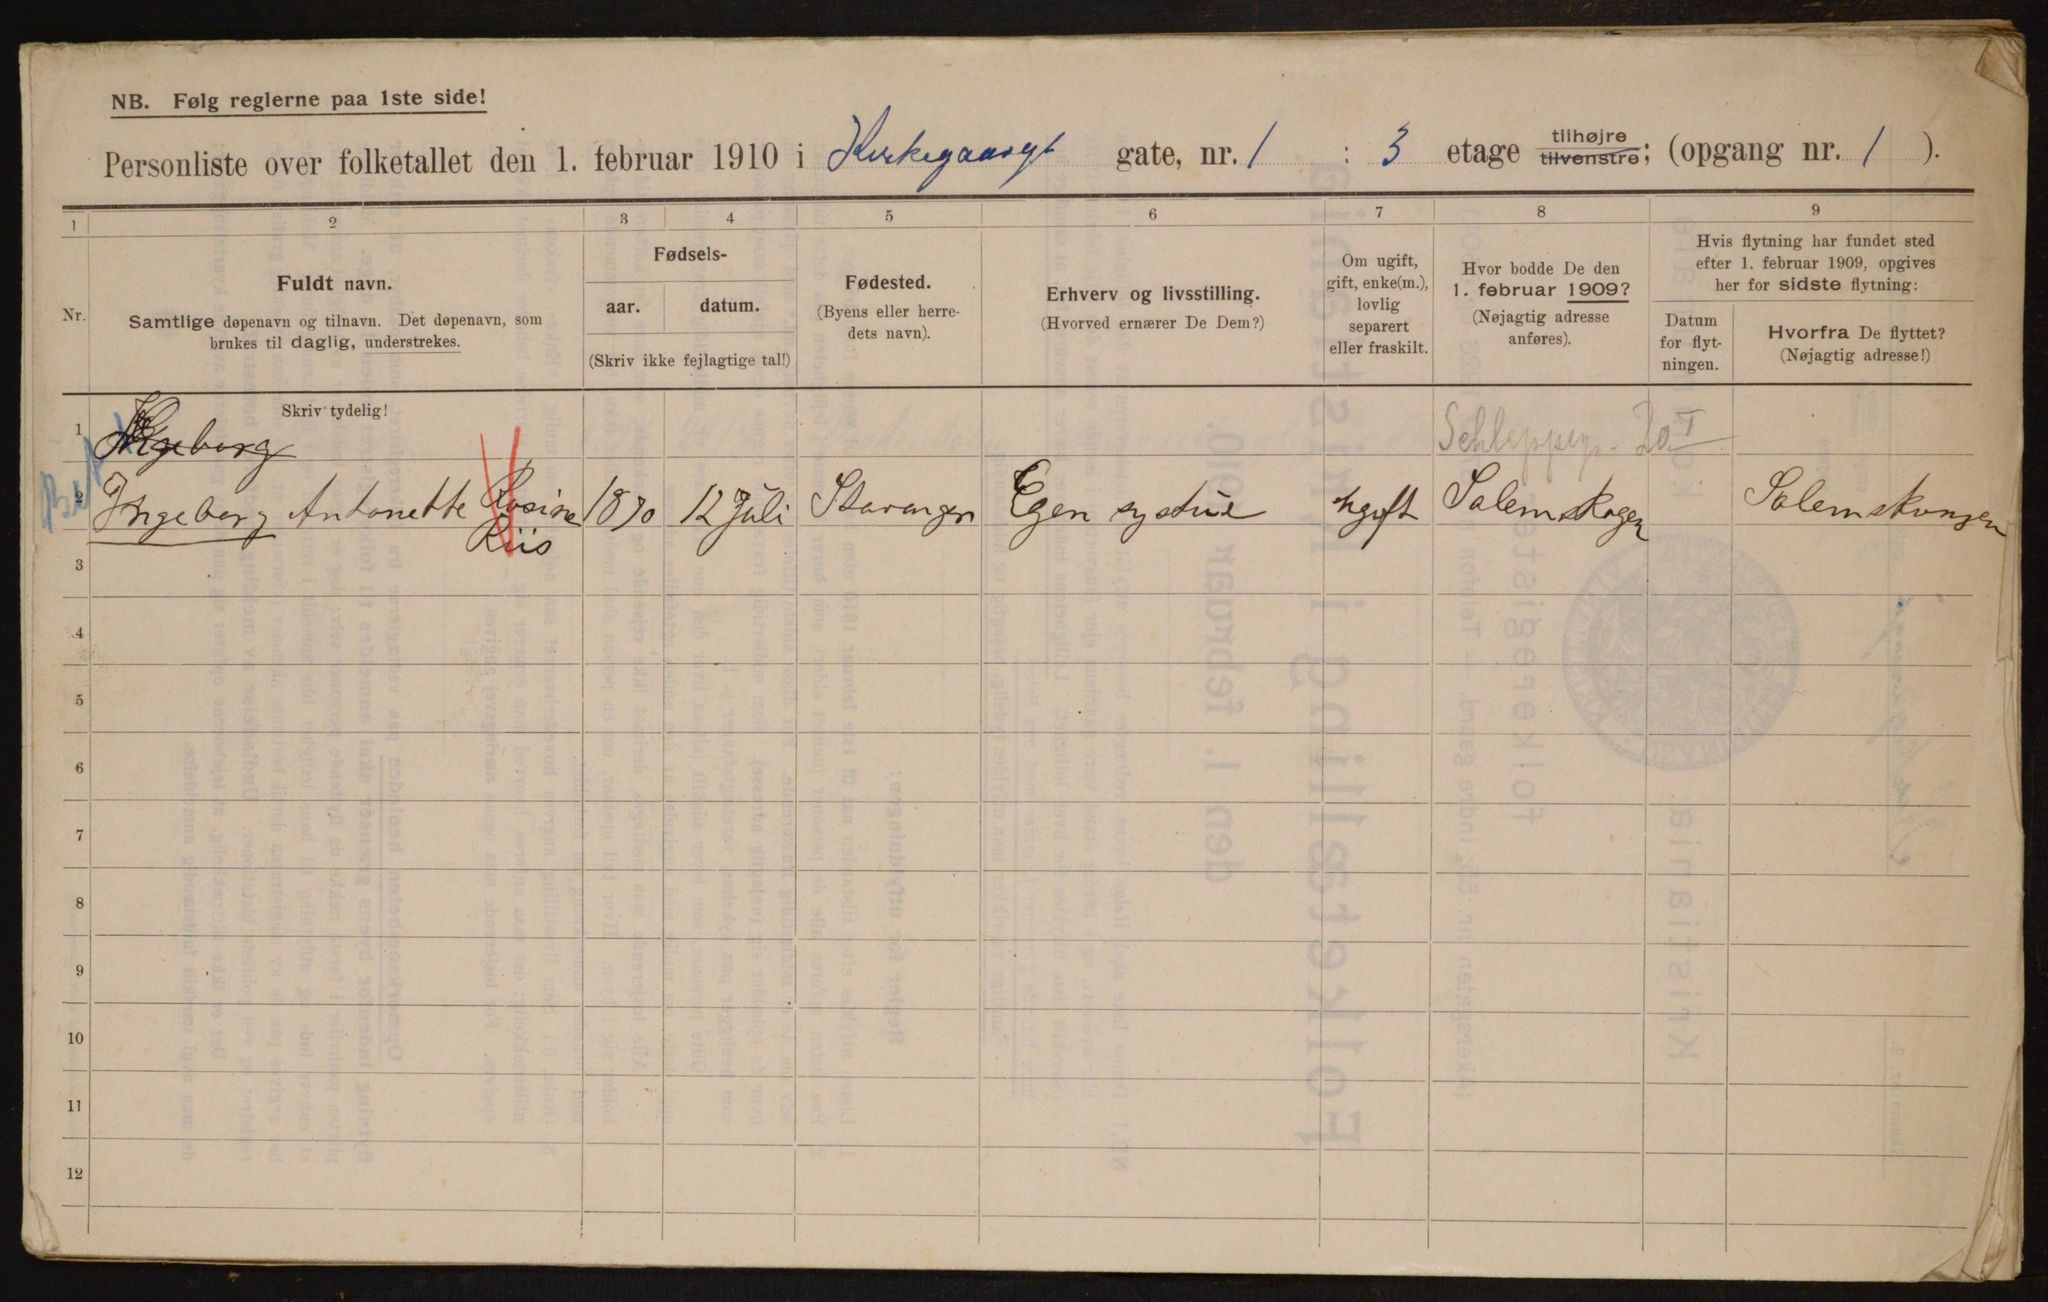 NB. Følg reglerne paa 1ste side!
Personliste over folketallet den 1. februar 1910 i Kirkegaarsgt gate, nr. 1 : 3 etage tilhøjre tilvenstre; (opgang nr. 1 ).
1 2 3 4 5 6 7 8 9
Nr.
Fuldt navn.
Samtlige døpenavn og tilnavn. Det døpenavn, som
brukes til daglig, understrekes.
Fødsels-
aar. datum.
(Skriv ikke fejlagtige tal!)
Fødested.
(Byens eller herre-
dets navn).
Erhverv og livsstilling.
(Hvorved ernærer De Dem?)
Om ugift,
gift, enke(m.),
lovlig
separert
eller fraskilt.
Hvor bodde De den
1. februar 1909?
(Nøjagtig adresse
anføres).
Hvis flytning har fundet sted
efter 1. februar 1909, opgives
her for sidste flytning:
Datum
for flyt-
ningen.
Hvorfra De flyttet?
(Nøjagtig adresse!)
Skriv tydelig!
1 Ingeborg Schleppegr. 20 I
2 Ingeborg Antonette Rosine 1870 12 Juli Stavanger Egen systue ugift Salemskogen Salemskongen
Riis
3
4
5
6
7
8
9
10
11
12